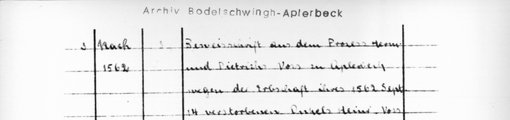 Archiv Bodelschwingh-Aplerbeck
3 Nach 3. Beweisschrift aus dem Prozess Herm
1562 und Dietrichs Voss zu Aplerbeck
wegen der Erbschaft ihres 1562 Sept
14 verstorbenen Onkels Heinr. Voss